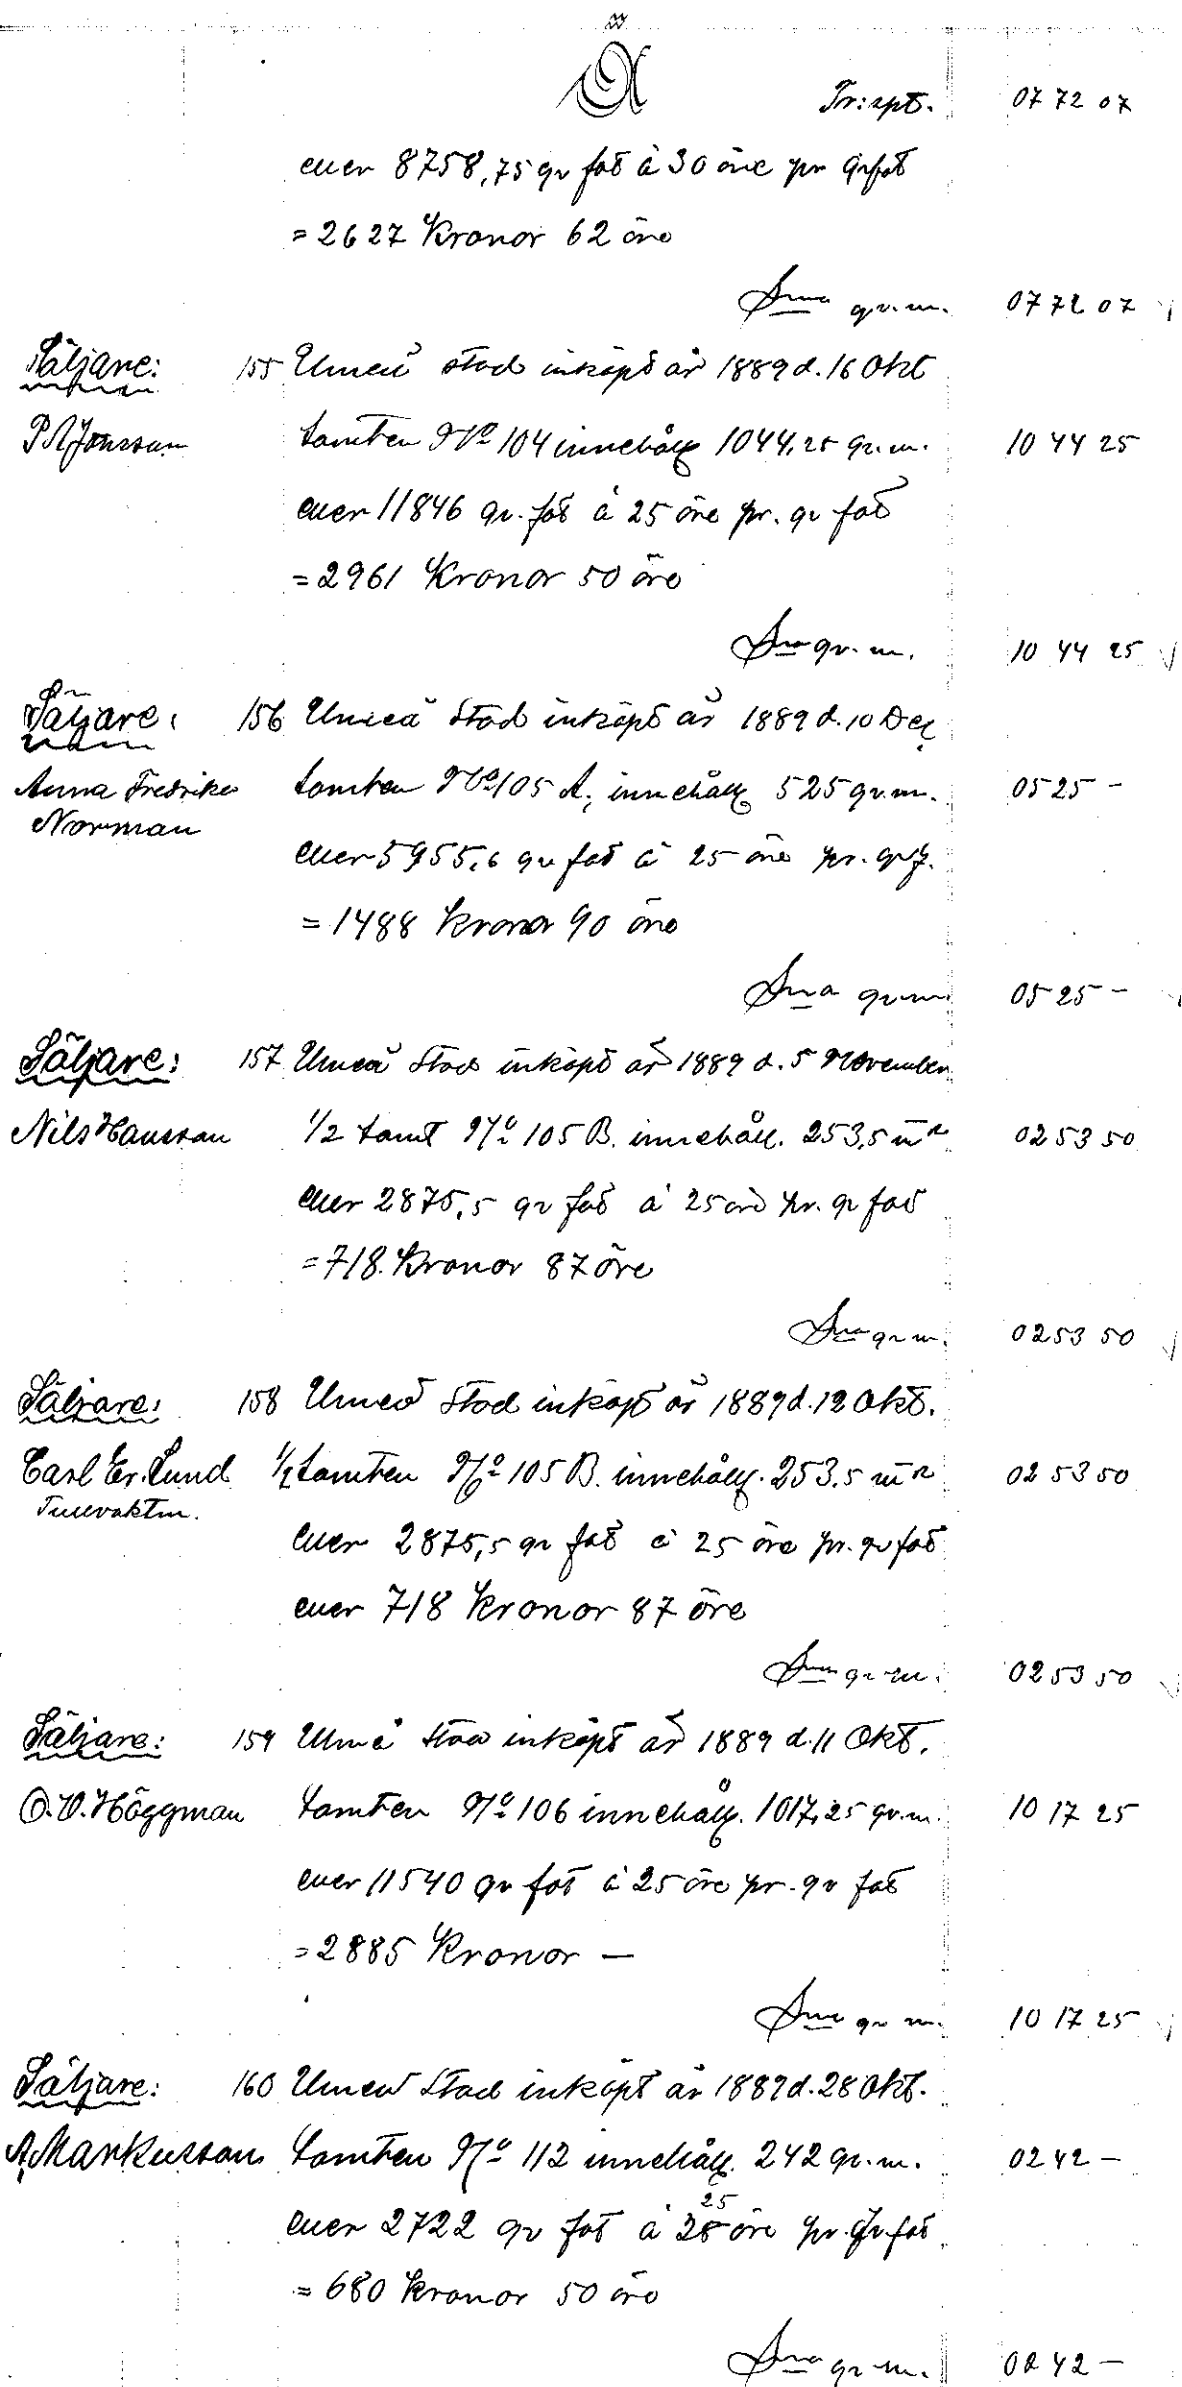 Tr:spt. 07 72 07
eller 8758,75 qv fot à 30 öre pr qvfot
= 2627 Kronor 62 öre
Sma qv.m. 07 72 07
Säljare: 155 Umeå stad inköpt år 1889 d. 16 Okt
P A Jonsson tomten No 104 innehåll 1044,25 qv.m. 10 44 25
eller 11846 qv. fot à 25 öre pr. qv fot
= 2961 Kronor 50 öre
Sma qv. m. 10 44 25
Säljare: 156 Umeå Stad inköpt år 1889 d. 10 Dec
Anna Fredrika tomten No 105 A, innehåll 525 qv.m. 05 25 –
Norman
eller 5955,6 qv fot à 25 öre pr. qv f.
= 1488 Kronor 90 öre
Sma qv m 05 25 –
Säljare: 157 Umeå Stad inköpt år 1889 d. 5 November
Nils Hansson 1/2 tomt No 105 B. innehåll. 253,5 m2 02 53 50
eller 2875,5 qv fot à 25 öre pr. qv fot
= 718. Kronor 87 öre
Sma qv m. 02 53 50
Säljare: 158 Umeå Stad inköpt år 1889 d. 12 Okt.
Carl Er. Lund 1/2 tomten No 105 B. innehåll. 253,5 m2 02 53 50
Tullvaktm.
eller 2875,5 qv fot à 25 öre pr. qv fot
eller 718 Kronor 87 öre
Sma qv m. 02 53 50
Säljare: 159 Umeå Stad inköpt år 1889 d. 11 Okt.
O. V. Häggman tomten No 106 innehåll. 1017,25 qv.m. 10 17 25
eller 11540 qv fot à 25 öre pr. qv fot
= 2885 Kronor —
Sma qv m. 10 17 25
Säljare: 160 Umeå Stad inköpt år 1889 d. 28 Okt.
A Markusson tomten No 112 innehåll. 242 qv.m. 02 42 –
25
eller 2722 qv fot à 28 öre pr. qv. fot
= 680 Kronor 50 öre
Sma qv m. 02 42 –